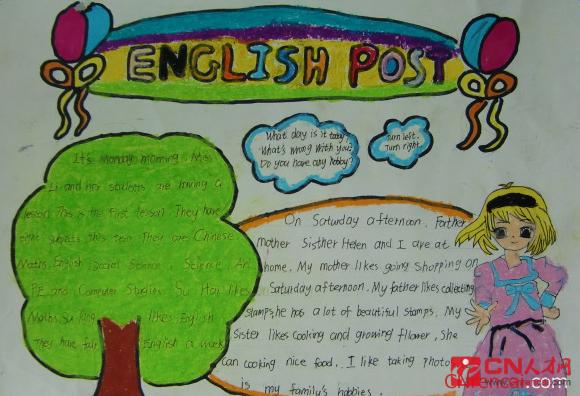 ENGLISH POST
What day is it today?
What's wrong with you?
Do you have any hobby?
Turn left.
Turn right.
It's Monday morning. Miss
Li and her students are having a
lesson. This is the first lesson. They have
subjects this term. Their are Chinese
Maths, English Social Science Science Art
P.E and Computer Studies. Su Hai likes
Maths. Su Yang likes English
They have English a week
On Saturday afternoon. Father
mother Sisther Helen and I are at
home. My mother likes going shopping on
Saturday afternoon. My father likes collecting
stamps he has a lot of beautiful stamps. My
sister likes cooking and growing fllower, She
can cooking nice food. I like taking photo
is my family's hobbies.
CN人才网
CNrencai.com